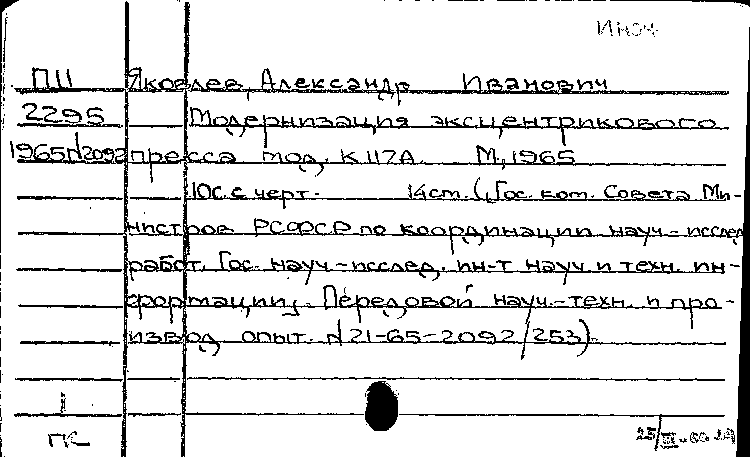 Иноч
П11 Яковлев, Александр Иванович
2295 Модернизация эксцентрикового
1965/2092 пресса мод. К117А. М, 1965
10с. с черт. 14см. (Гос. ком. Совета Ми-
нистров РСФСР по координации науч-исслед
работ. Гос. науч-исслед. ин-т науч и техн. ин-
формации. Передовой науч.-техн. и про-
извод опыт. N21-65-2092/253).
1
ГК
25/III-66